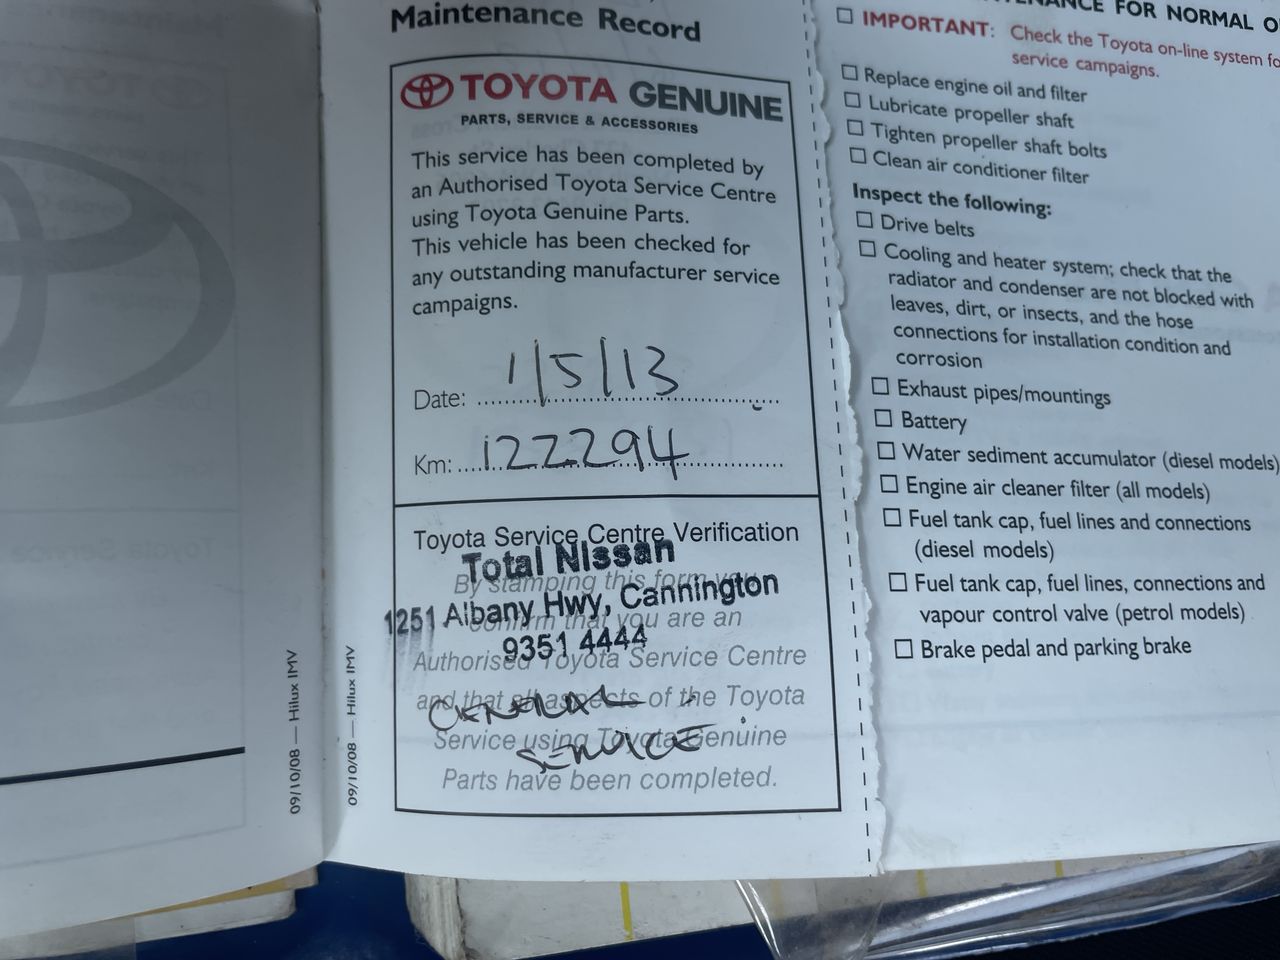 Maintenance Record
TOYOTA GENUINE
PARTS, SERVICE & ACCESSORIES
This service has been completed by
an Authorised Toyota Service Centre
using Toyota Genuine Parts.
This vehicle has been checked for
any outstanding manufacturer service
campaigns.
Date: 1/5/13
Km: 122294
Toyota Service Centre Verification
Total Nissan
By stamping this form you
1251 Albany Hwy, Cannington
confirm that you are an
9351 4444
Authorised Toyota Service Centre
and that all aspects of the Toyota
GENERAL
Service using Toyota Genuine
SERVICE
Parts have been completed.
09/10/08 — Hilux IMV
09/10/08 — Hilux IMV
FOR NORMAL
☐ IMPORTANT: Check the Toyota on-line system
service campaigns.
☐ Replace engine oil and filter
☐ Lubricate propeller shaft
☐ Tighten propeller shaft bolts
☐ Clean air conditioner filter
Inspect the following:
☐ Drive belts
☐ Cooling and heater system; check that the
radiator and condenser are not blocked with
leaves, dirt, or insects, and the hose
connections for installation condition and
corrosion
☐ Exhaust pipes/mountings
☐ Battery
☐ Water sediment accumulator (diesel models)
☐ Engine air cleaner filter (all models)
☐ Fuel tank cap, fuel lines and connections
(diesel models)
☐ Fuel tank cap, fuel lines, connections and
vapour control valve (petrol models)
☐ Brake pedal and parking brake